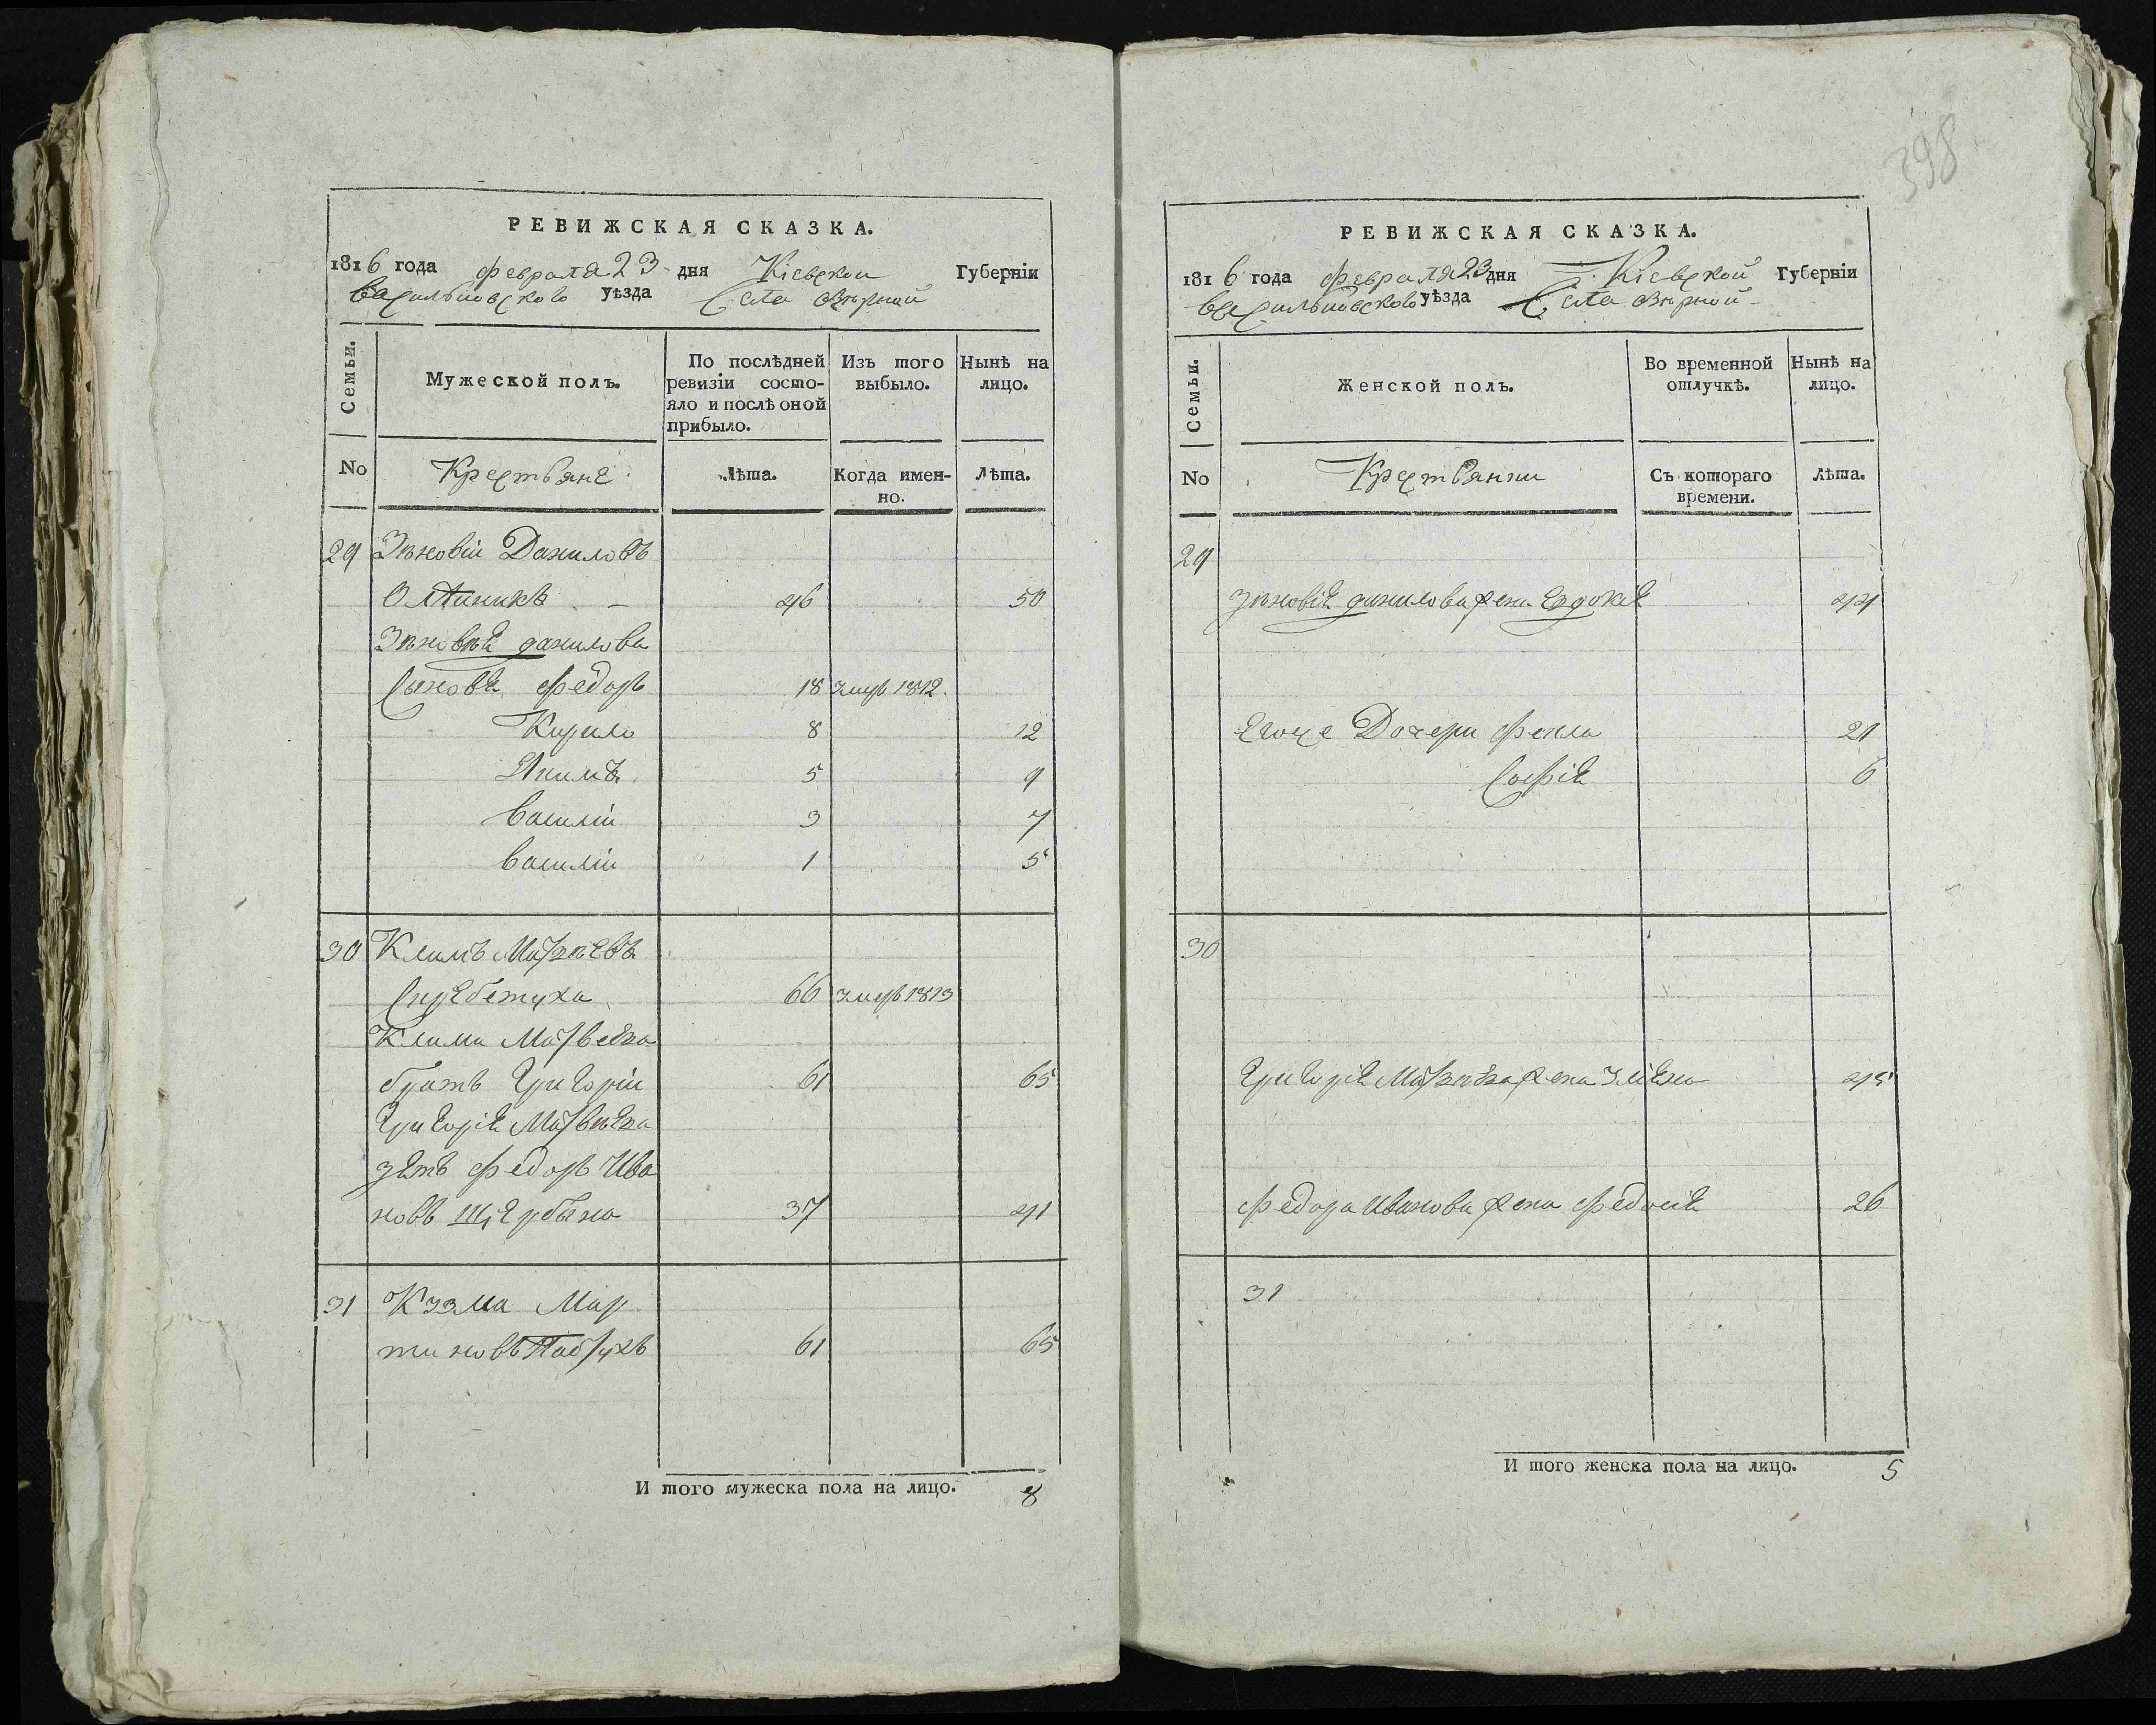 РЕВИЖСКАЯ СКАЗКА.
1816 года февраля 23 дня Кіевской Губерніи
васильковского уѣзда Села
Семьи.
Мужеской полъ.
По послѣдней ревизіи состояло и послѣ оной прибыло.
Изъ того выбыло.
Нынѣ на лицо.
No
Крестьяне
Лѣта.
Когда именно.
Лѣта.
29 Зѣновіи Даниловъ
46 50
Зѣновѣя данилова
Сыновя федоръ 18 умеръ 1812.
Кирило 8 12
Якимъ 5 9
василіи 3 7
василіи 1 5
30 Климъ Матвѣевъ
66 умеръ 1813
Клима Матвеева
братъ григоріи 61 65
григорія Матвѣева
зять федоръ Ива
новъ 37 41
31 Кузма Мар
тиновъ 61 65
И того мужеска пола на лицо. 8
398
РЕВИЖСКАЯ СКАЗКА.
1816 года февраля 23 дня Кіевской Губерніи
васильковского уѣзда Села
Семьи.
Женской полъ.
Во временной отлучкѣ.
Нынѣ на лицо.
No
Крестьянки
Съ котораго времени.
Лѣта.
29
Зѣновія данилова жена Евдокія 44
Егоже Дочери фекла 21
Софія 6
30
григорія Матвѣева жена 45
федора Иванова жена федосія 26
31
И того женска пола на лицо. 5